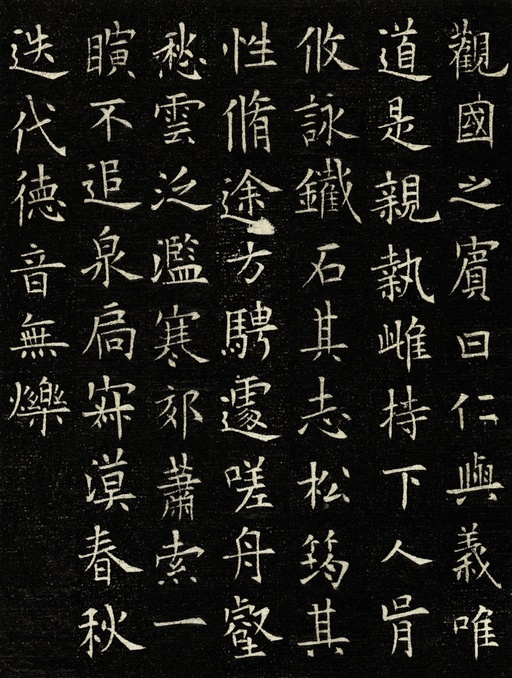 觀國之賓曰仁與義唯
道是親執雌持下人胥
攸詠鐵石其志松筠其
性脩途方騁遽嗟舟壑
愁雲泛濫寒郊蕭索一
瞚不追泉扃寂漠春秋
迭代德音無爍